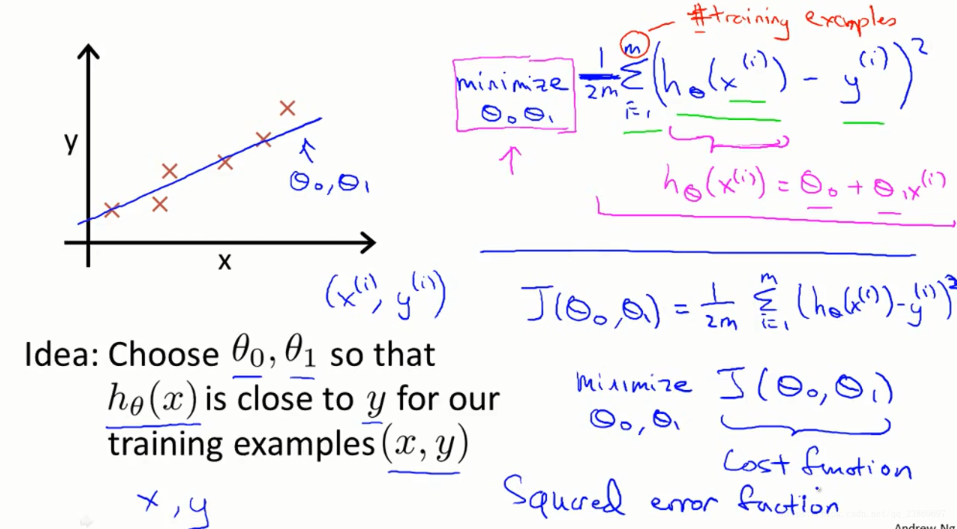 #training examples
minimize θ₀ θ₁ 1/2m Σ_{i=1}^{m} (h_θ(x^{(i)}) - y^{(i)})²
h_θ(x^{(i)}) = θ₀ + θ₁x^{(i)}
y
θ₀, θ₁
x
(x^{(i)}, y^{(i)})
J(θ₀, θ₁) = 1/2m Σ_{i=1}^{m} (h_θ(x^{(i)}) - y^{(i)})²
Idea: Choose θ₀, θ₁ so that
h_θ(x) is close to y for our
training examples (x, y)
x, y
minimize J(θ₀, θ₁)
θ₀, θ₁
Cost function
Squared error function
Andrew Ng